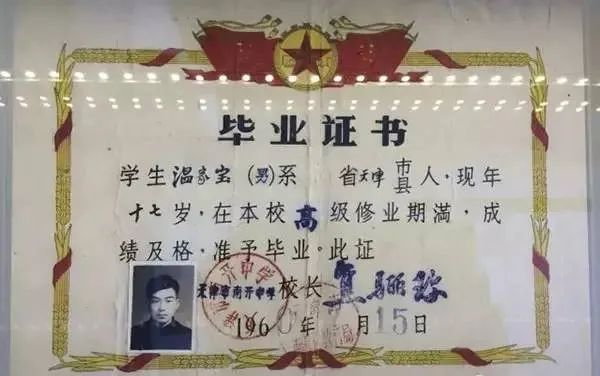 毕业证书
学生温家宝(男)系 省天津市县人·现年
十七岁·在本校高级修业期满,成
绩及格·准予毕业·此证
天津市南开中学校长
1960年 月15日